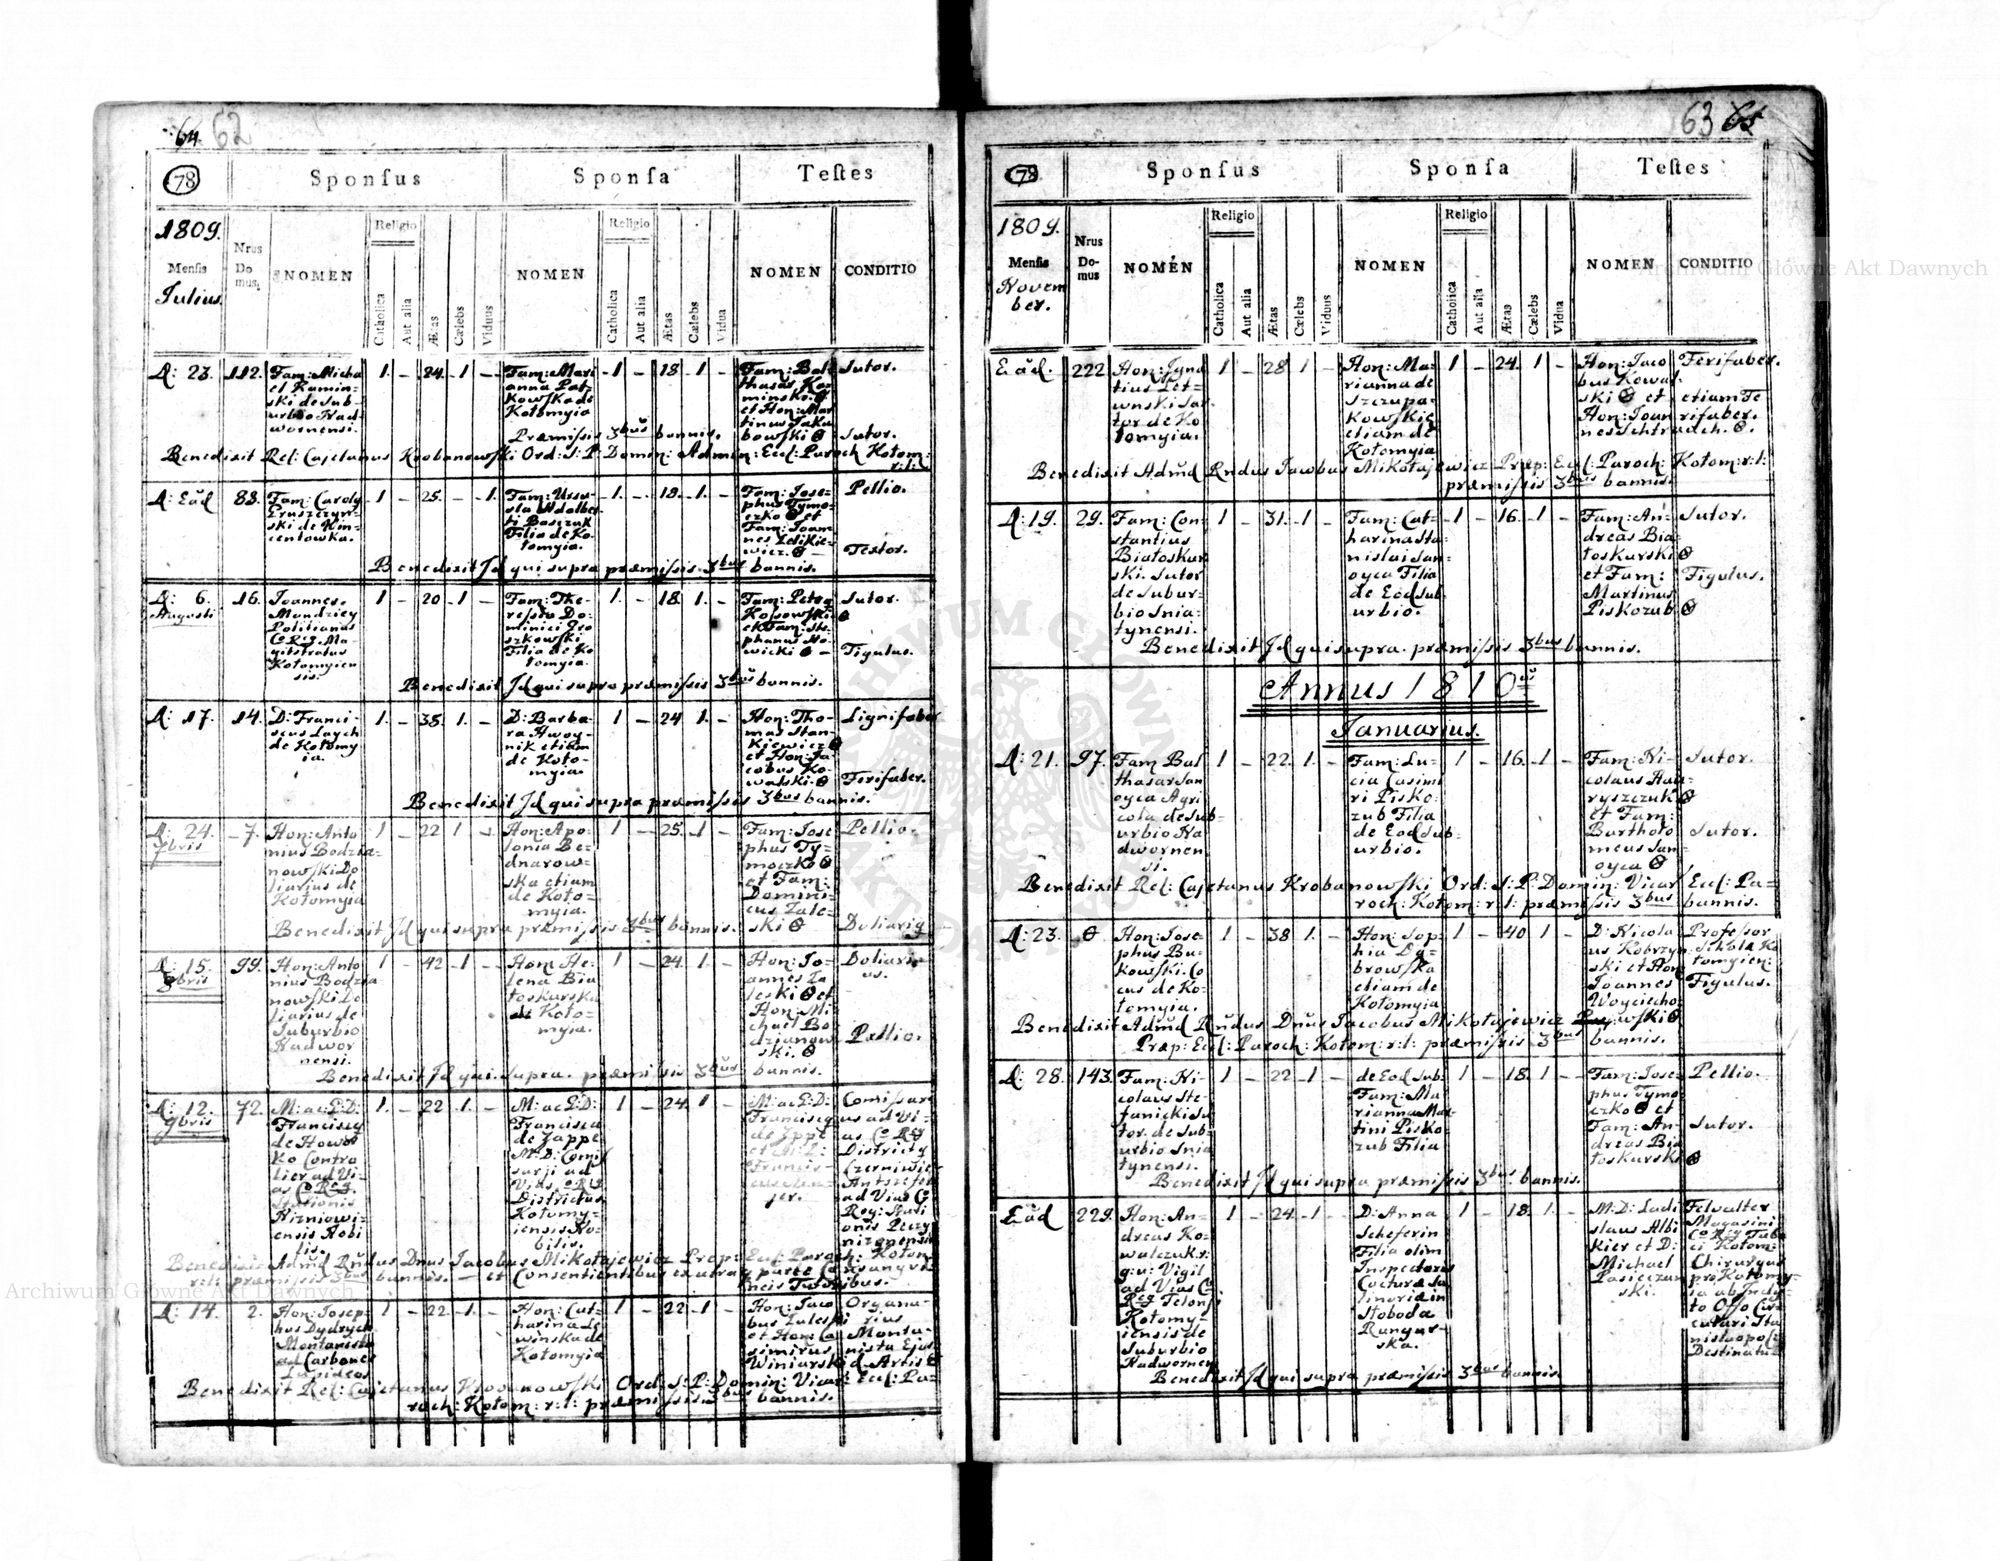 64. 62
78
Sponsus
Sponsa
Testes
1809.
Mensis
Julius.
Nrus
Do
mus.
NOMEN
Religio
Catholica
Aut alia
Ætas
Cælebs
Viduus
NOMEN
Religio
Catholica
Aut alia
Ætas
Cælebs
Vidua
NOMEN
CONDITIO
D: 23. 112.
Fam: Micha
el Kamin=
ski de Sub=
urbio Nad=
wornensi.
1. – 24. 1 –
Fam: Mari
anna Pat=
kowska de
Kołomyia
1 – 18. 1 –
Fam: Bal=
thasar Ka
minski
et Hon: Mar
tinus Jaku
bowski
Sutor.
Sutor.
Præmissis 3bus bannis.
Benedixit Rel: Cajetanus Krobanowski Ord: S: P: Domin: Admin: Eccl: Paroch Kołom:
r: l:
D: Eãd 88.
Fam: Caroly
Gruszczyn=
ski de Win=
centowka.
1 – 25. – 1.
Fam: Ursu=
sla Adalber
ti Basczuk
Filia de Ko=
łomyia.
1. – 18. 1. –
Fam: Jose=
phus Tymo=
czko et
Fam: Joan
nes Zelikie=
wicz.
Pellio.
Textor.
Benedixit Jd qui supra præmissis 3bus bannis.
D: 6.
Augusti
16.
Joannes
Mandziey
Politianus
C. Reg. Ma=
gistratus
Kołomyien
sis.
1 – 20 1 –
Fam: The=
ressia Do=
minici Gro
szkowski
Filia de Ko
łomyia.
1. – 18. 1. –
Fam: Petrg
Kossowski
et Fam: Ste=
phanus No=
wicki
Sutor.
Figulus.
Benedixit Jd qui supra præmissis 3bus bannis.
D: 17. 14.
D: Franci=
scus Laych
de Kołomy
ia.
1. – 38. 1. –
D: Barba=
ra Hwoy=
nik etiam
de Koło=
myia.
1 – 24. 1. –
Hon: Tho=
mas Stan=
kiewicz
et Hon: Ja=
cobus Ko=
walski.
Lignifaber
Ferifaber.
Benedixit Jd qui supra præmissis 3bus bannis.
D: 24.
7bris
7.
Hon: Anto
nius Bodzia=
nowski Do
liarius de
Kołomyia
1 – 22 1 –
Hon: Apo=
lonia Be=
dnarow=
ska etiam
de Koło=
myia.
1 – 25. 1 –
Fam: Jose
phus Ty=
moczko
et Fam:
Domini=
cus Zale=
ski
Pellio.
Doliarig
Benedixit Jd qui supra præmissis 3bus bannis.
D: 15.
8bris
99.
Hon: Anto
nius Bodzia=
nowski Do
liarius de
Suburbio
Nadwor
nensi.
1 – 42 1 –
Hon: He=
lena Bia
łoskurska
de Koło=
myia.
1 – 24. 1. –
Hon: Jo=
annes Za
leski et
Hon: Mi=
chael Bo
dzianow
ski.
Doliari=
us.
Pellio.
Benedixit Jd qui supra præmissis 3bus bannis.
D: 12.
9bris
72.
M: ac P: D:
Franciscg
de Howor
ko Contro
lier ad Vi=
as C. Reg.
Stationis
Nizniowi=
ensis Nobi
lis.
1. – 22 1. –
M: ac P: D:
Francisca
de Zappe
M: D: Comis
sarji ad
Vias C Rg
Districtus
Kołomy=
iensis No=
bilis.
1 – 24. 1 –
M: ac P: D:
Franciscg
de Zppe
Comissari=
us ad Vi=
as C. Reg
Districtg
ad Vias C.
Reg: Stati
onis
Benedixit Admd Rñdus Dnus Jacobus Mikołajewicz Præp: Eccl: Paroch: Kołom
r: l: præmissis 3bus bannis. – et Consentientibus ex utraq parte Consangvi=
neis Tutoribus.
D: 14. 2.
Hon: Josep=
hus Dydrych
Montanista
ad Carbones
Lapideos
1 – 22. 1. –
Hon: Cat=
harina Le
winska de
Kołomyia
1 – 22. 1 –
Hon: Jaco
bus Zaleski
et Hon: Ca
simirus
Winiarski
Organa=
rius
Monta=
nista Ejus
d Artis
Benedixit Rel: Cajetanus Krobanowski Ord: S: P: Domin: Vicar: Eccl: Pa=
roch: Kołom: r: l: præmissis 3bus bannis.
63 65
78
Sponsus
Sponsa
Testes
1809.
Mensis
Novem
ber.
Nrus
Do-
mus
NOMEN
Religio
Catholica
Aut alia
Ætas
Cælebs
Viduus
NOMEN
Religio
Catholica
Aut alia
Ætas
Cælebs
Vidua
NOMEN
CONDITIO
Eãd. 222
Hon: Jgna
tius Let=
wnski Sar
tor de Ko
łomyia.
1 – 28 1 –
Hon: Ma=
rianna de
Szczupa=
kowskie
etiam de
Kołomyia
1 – 24. 1 –
Hon: Jaco
bus Kowal
ski et
Hon: Joan
nes Schtrauch.
Ferifaber.
etiam Fe
rifaber.
Benedixit Admd Rndus Jacobus Mikołajewicz Præp: Eccl: Paroch: Kołom: r: l:
præmissis 3bus bannis.
D: 19. 29.
Fam: Con=
stantius
Białoskur
ski. Sutor
de Subur=
bio Snia=
tynensi.
1 – 31. 1 –
Fam: Cat=
harina Sta=
nislai San=
oyca Filia
de Eod Sub
urbio.
1 – 16. 1 –
Fam: An=
dreas Bia=
łoskurski
et Fam:
Martinus
Piskozub
Sutor.
Figulus.
Benedixit Jd qui supra. præmissis 3bus bannis.
Annus 1810us
Januarius.
D: 21. 97.
Fam Bal
thasar San
oyca Agri
cola de Sub=
urbio Na
dwornen
si.
1 – 22. 1. –
Fam: Lu=
cia Casimi
ri Pisko=
zub Filia
de Eod Sub=
urbio.
1 – 16. 1 –
Fam: Ni=
colaus Hau=
ryszczuk
et Fam:
Bartholo
meus San=
oyca
Sutor.
Sutor.
Benedixit Rel: Cajetanus Krobanowski Ord: S: P: Domin: Vicar Eccl: Pa=
roch: Kołom: r: l: præmissis 3bus bannis.
D: 23.
Hon: Jose=
phus Bu=
kowski. Co
cus de Ko=
łomyia.
1 – 38 1. –
Hon: Sop=
hia Dą=
browska
etiam de
Kołomyia
1 – 40 1 –
D: Nicola
us Kobrzyn=
ski et Hon
Joannes
Woyciecho
wski
Professor
Schola Ko
łomyien:
Figulus.
Benedixit Admd Rñdus Dnus Jacobus Mikołajewicz
Præp: Eccl: Paroch: Kołom: r: l: præmissis 3bus bannis.
D: 28. 143.
Fam: Ni=
colaus Ste=
fanicki Su
tor. de Sub=
urbio Snia
tynensi.
1 – 22 1. –
de Eod Sub:
Fam: Ma
rianna Mar=
tini Pisko=
zub Filia
1 – 18. 1 –
Fam: Jose=
phus Tymo=
czko et
Fam: An=
dreas Bia
łoskurski
Pellio.
Sutor.
Benedixit Jd qui supra præmissis 3bus bannis.
Eãd 229.
Hon: An=
dreas Ko=
walczuk r:
g: u: Vigil
ad Vias C.
Reg Telonij
Kołomy=
iensis de
Suburbio
Nadwornen
1 – 24. 1 –
D: Anna
Scheferin
Filia olim
Inspectoris
Cocturæ Sa
linaria in
Słoboda
Rungur=
ska.
1 – 18. 1 –
M: D: Ladi
slaus Albi
kier et D:
Michael
Pasieczan
ski.
Felvalter
Magasini
C. Reg Taba
ci Kołom:
Chirurgus
pro Kołomy=
ia ab Jncly
to Offo Cir=
culari Sta
nislaopol:
Destinatus
Benedixit Jd qui supra præmissis 3bus bannis.
Archiwum Główne Akt Dawnych
Archiwum Główne Akt Dawnych
ARCHIWUM GŁÓWNE AKT DAWNYCH